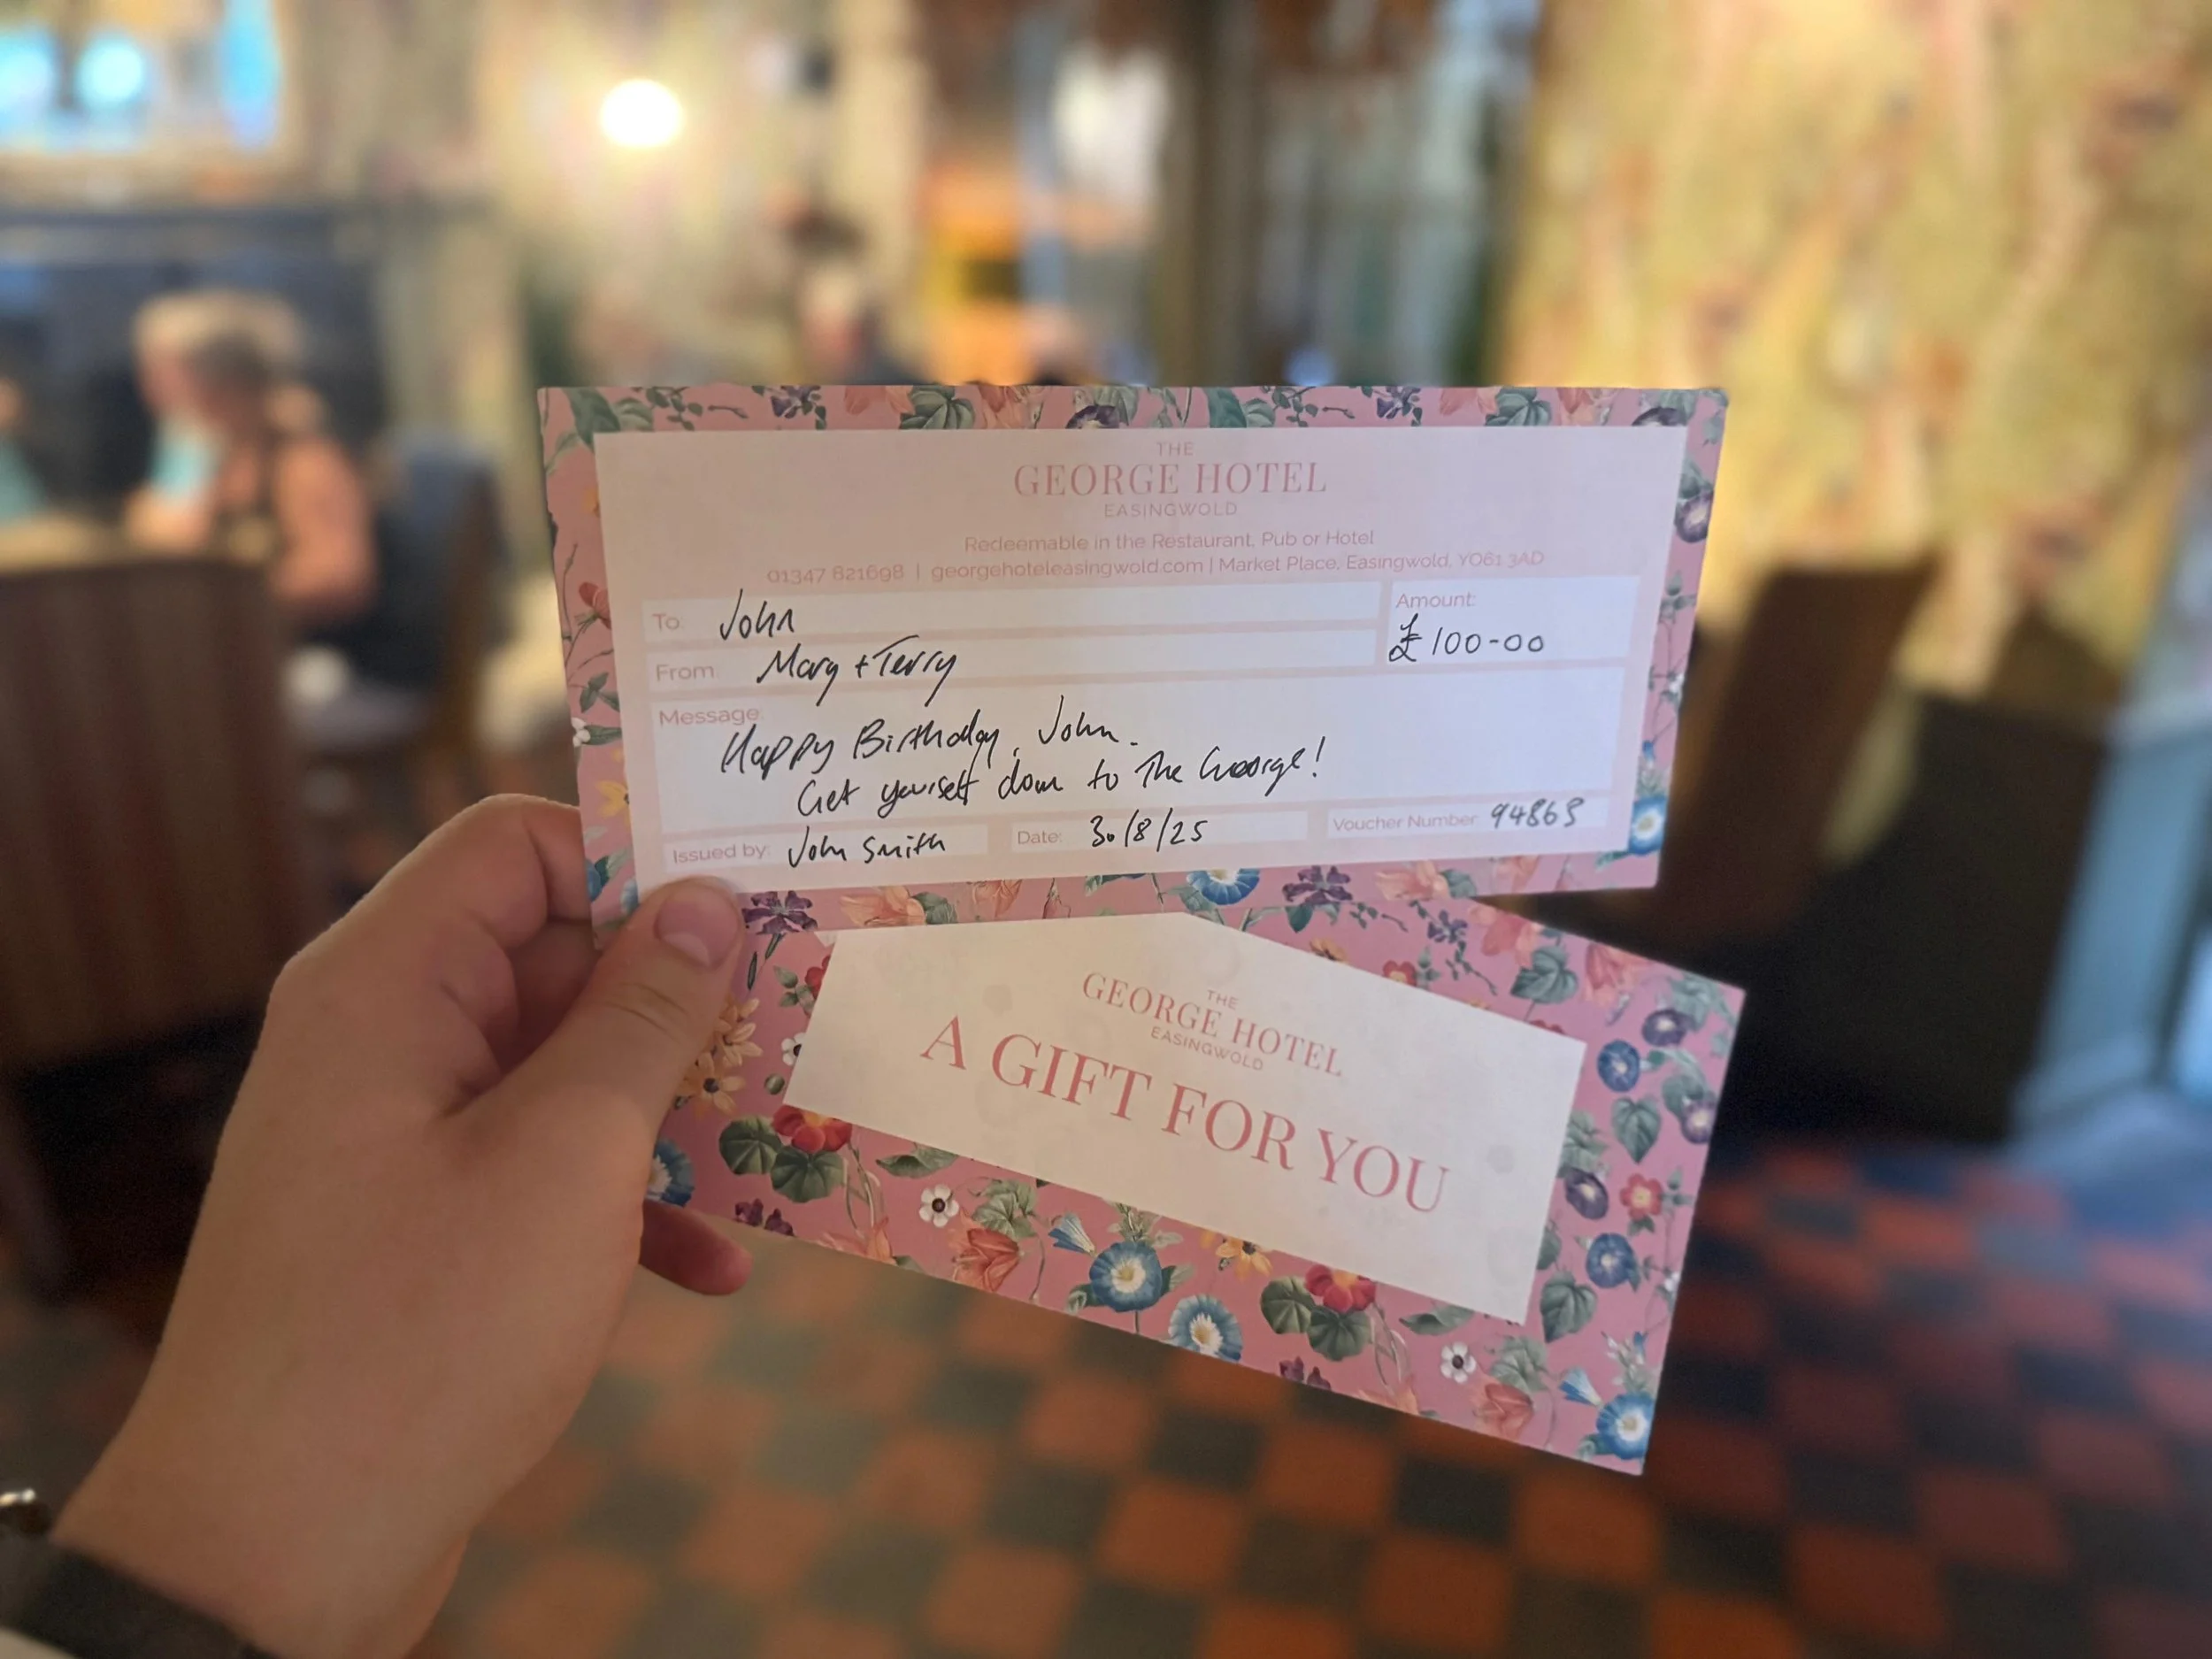 THE
GEORGE HOTEL
EASINGWOLD
Redeemable in the Restaurant, Pub or Hotel
01347 821698 | georgehoteleasingwold.com | Market Place, Easingwold, YO61 3AD
To: John
Amount:
£100-00
From: Mary + Terry
Message:
Happy Birthday, John.
Get yourself down to The George!
Issued by: John Smith
Date: 30/8/25
Voucher Number: 94863
THE
GEORGE HOTEL
EASINGWOLD
A GIFT FOR YOU